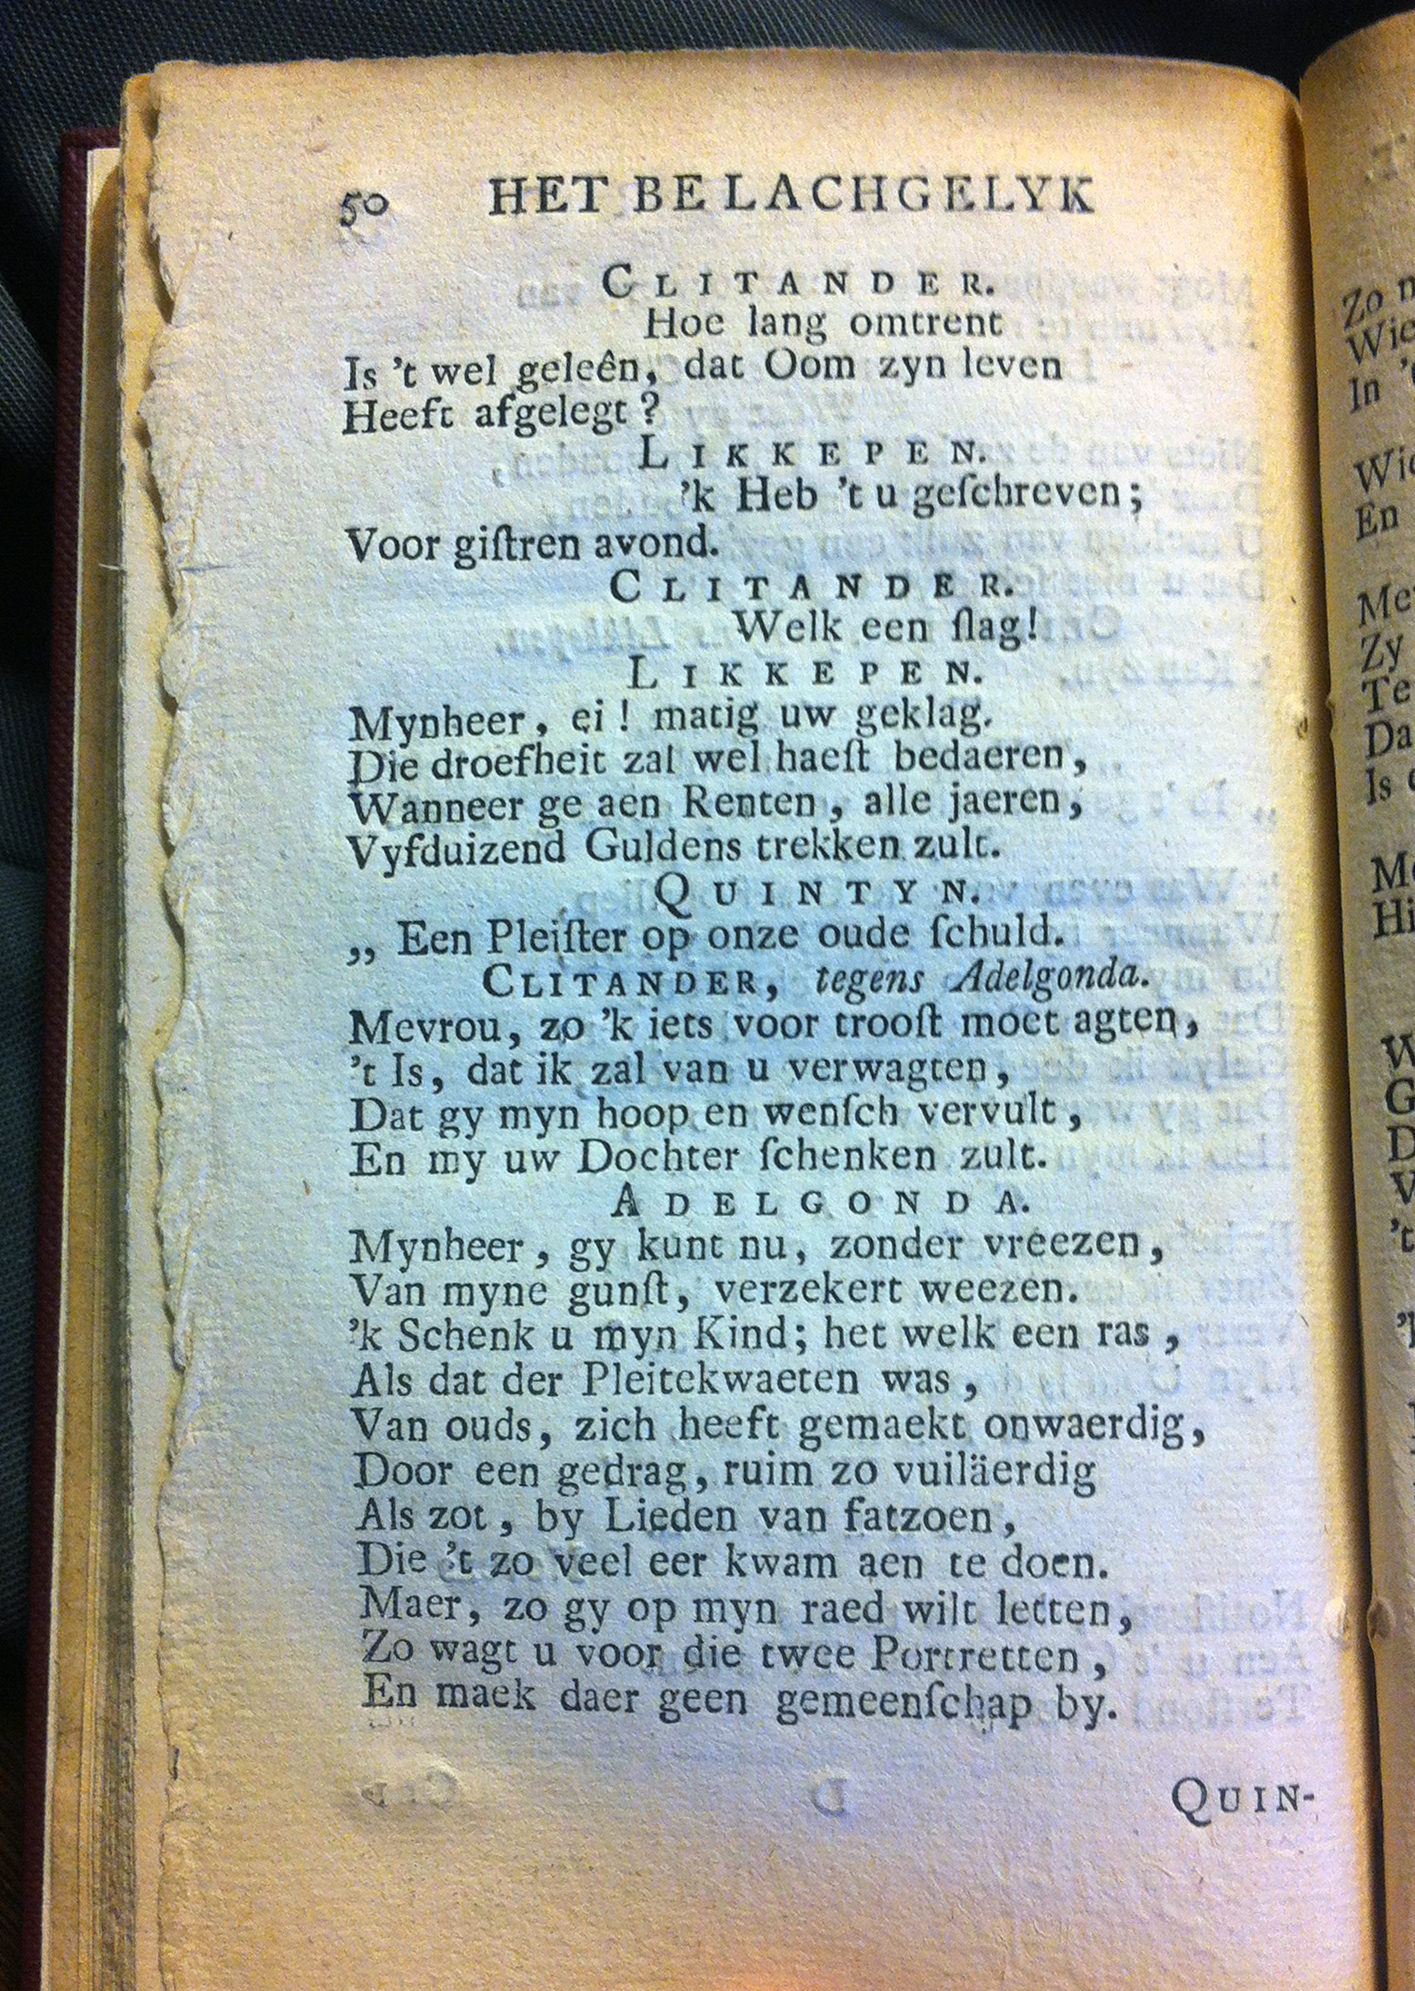 50 HET BELACHGELYK
CLITANDER.
Hoe lang omtrent
Is 't wel geleên, dat Oom zyn leven
Heeft afgelegt?
LIKKEPEN.
'k Heb 't u geſchreven;
Voor giſtren avond.
CLITANDER.
Welk een ſlag!
LIKKEPEN.
Mynheer, ei! matig uw geklag.
Die droefheit zal wel haeſt bedaeren,
Wanneer ge aen Renten, alle jaeren,
Vyfduizend Guldens trekken zult.
QUINTYN.
„ Een Pleiſter op onze oude ſchuld.
CLITANDER, tegens Adelgonda.
Mevrou, zo 'k iets voor trooſt moet agten,
't Is, dat ik zal van u verwagten,
Dat gy myn hoop en wenſch vervult,
En my uw Dochter ſchenken zult.
ADELGONDA.
Mynheer, gy kunt nu, zonder vreezen,
Van myne gunſt, verzekert weezen.
'k Schenk u myn Kind; het welk een ras,
Als dat der Pleitekwaeten was,
Van ouds, zich heeft gemaekt onwaerdig,
Door een gedrag, ruim zo vuiläerdig
Als zot, by Lieden van fatzoen,
Die 't zo veel eer kwam aen te doen.
Maer, zo gy op myn raed wilt letten,
Zo wagt u voor die twee Portretten,
En maek daer geen gemeenſchap by.
QUIN-
Zo
Wie
In
Wi
En
Me
Zy
Te
Da
Is
Hi
't